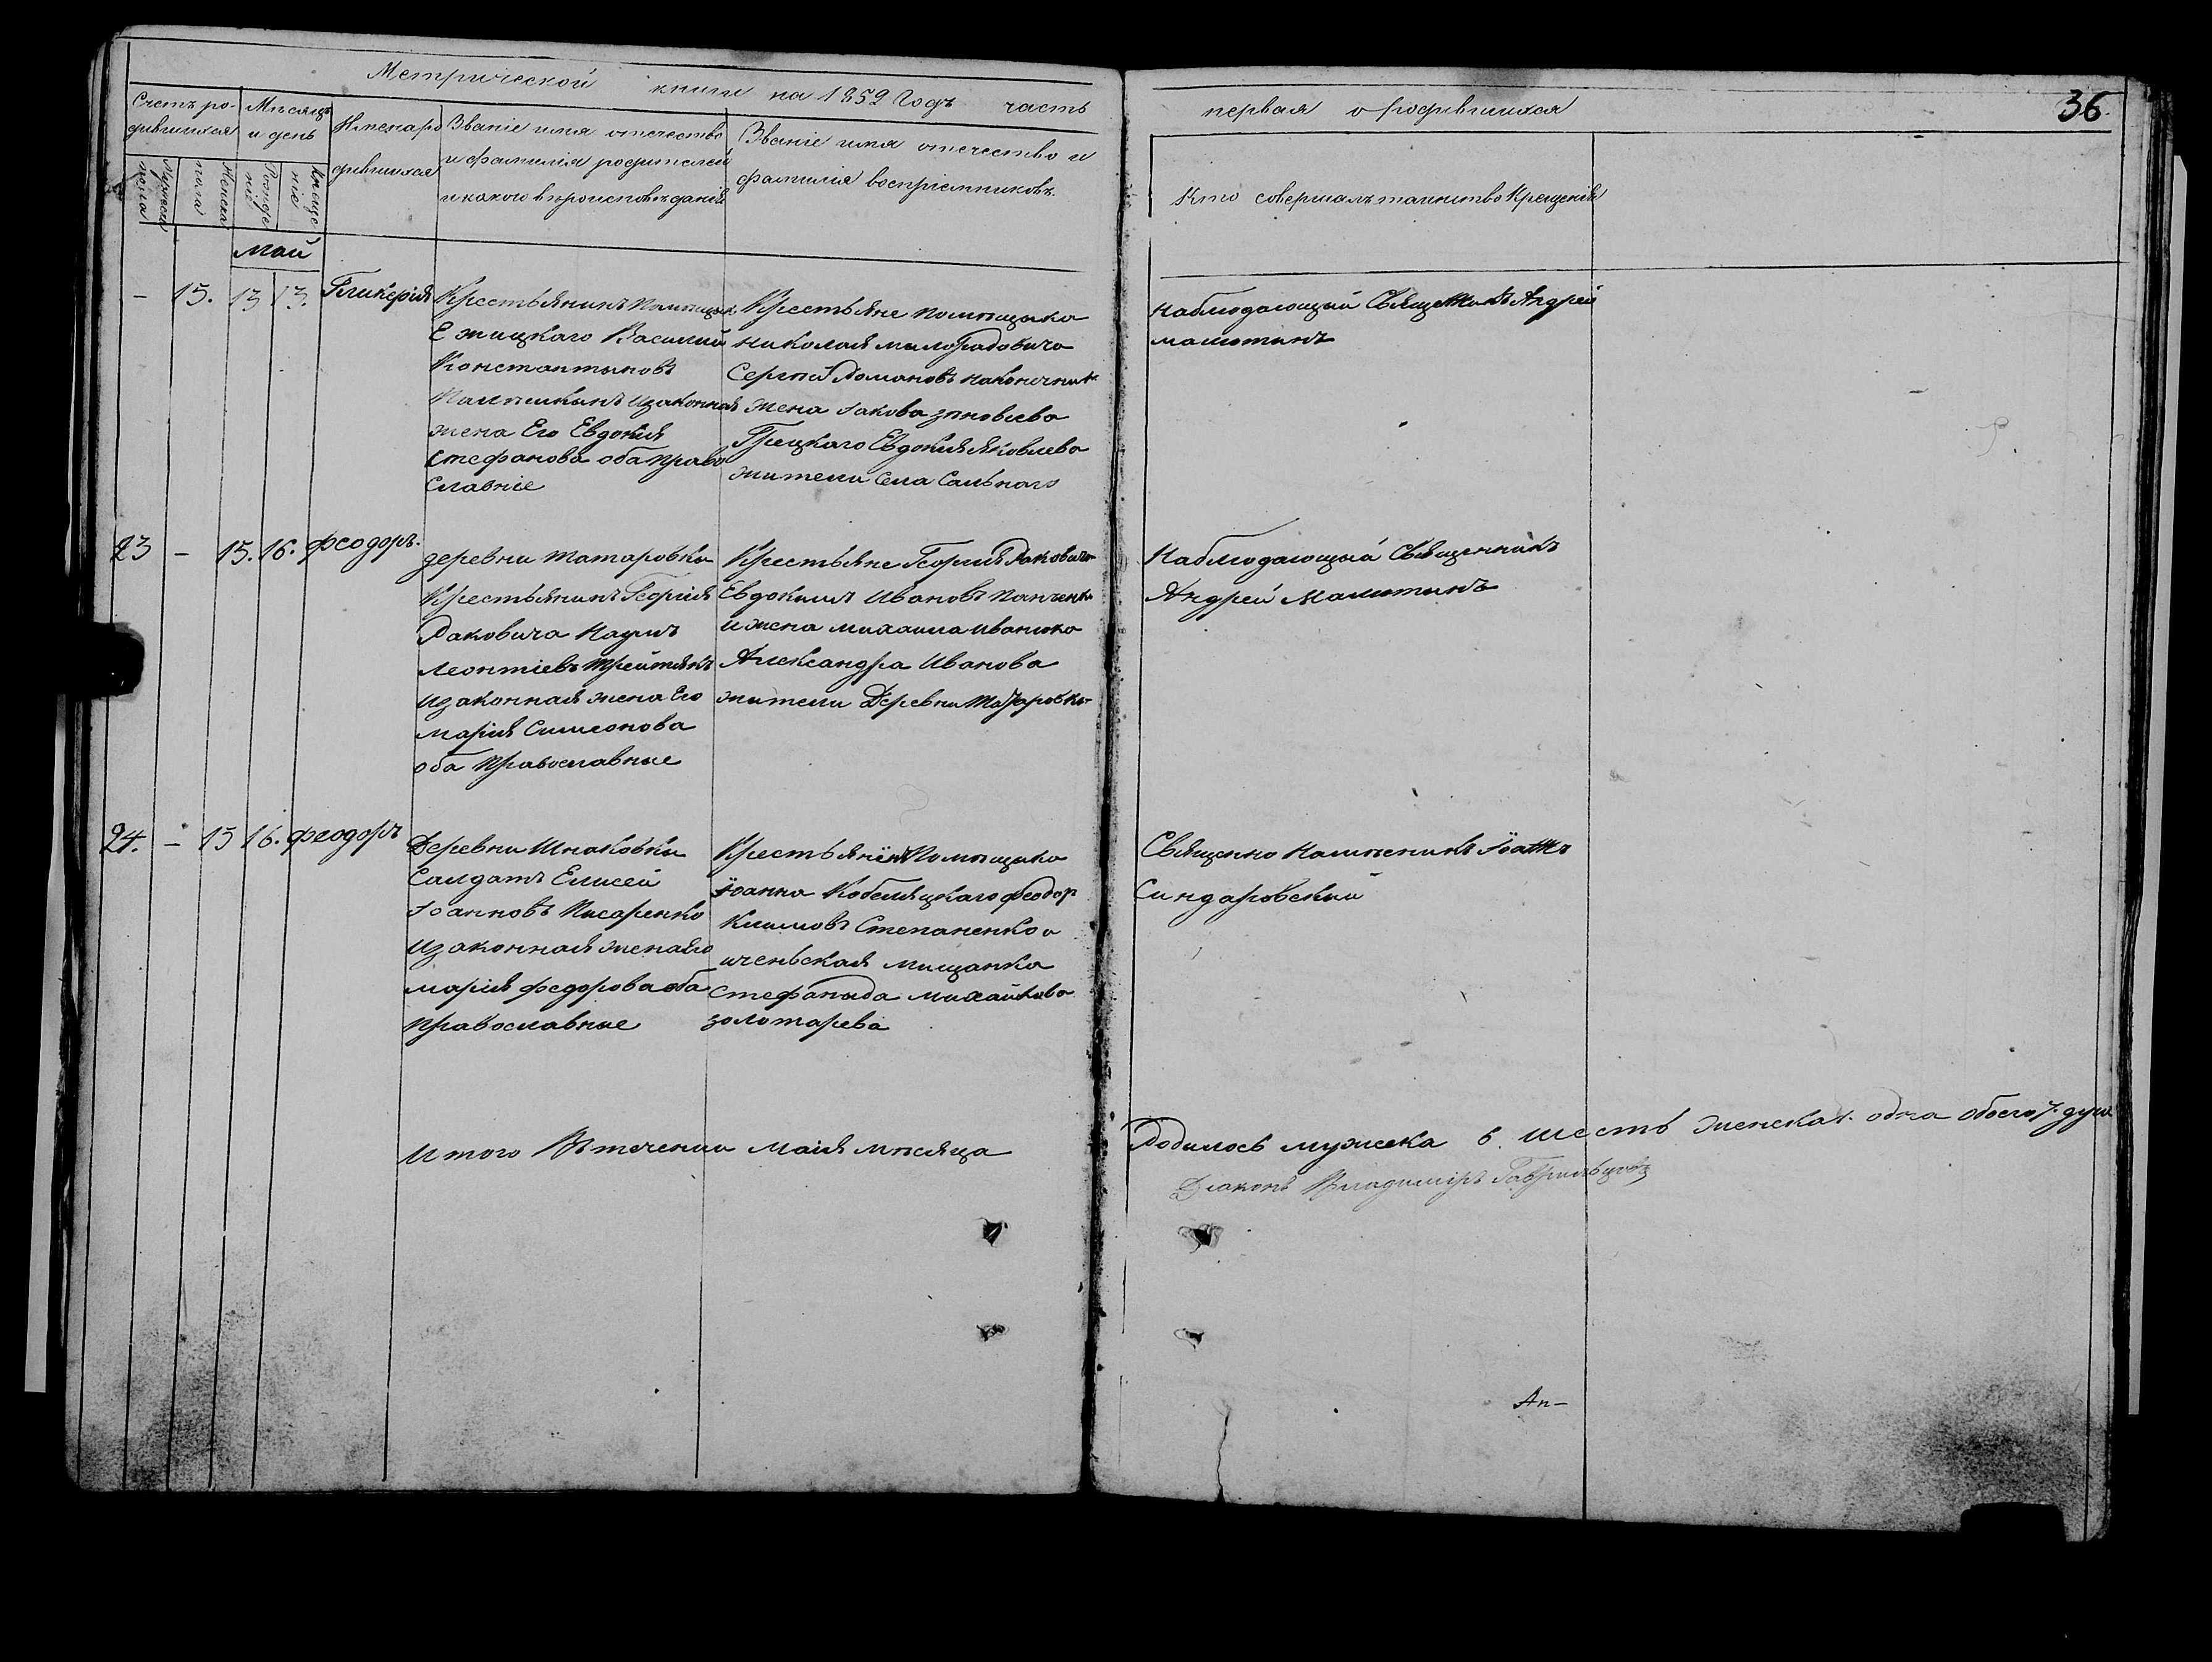 Метрической книги на 1852 Годъ часть
первая о родившихся
36.
Счетъ ро-
дившихся
Мѣсяцъ
и день
Имена ро
дившихся
Званіе имя отечество
и фамилія родителей
и какого вѣроисповѣданія
Званіе имя отечество и
фамилія воспріемниковъ.
Кто совершалъ таинство Крещенія
Мужеска
пола
Женска
пола
Рожде
ніе
Креще
ніе
Май
– 15. 13 13. Гликерія
Крестьянинъ Помѣщик.
Ежицкаго Василий
Константыновъ
изаконная
жена Его Евдокія
Стефанова оба право
Славніе
Крестьяне помѣщика
Николая милорадовича
Сергѣй Романовъ
жена Іакова зѣновіева
Грецкаго Евдокія Яковлева
жители Села Сальнаго
Наблюдающій Священникъ Андрей
малютинъ
23 – 15. 16. Феодоръ.
деревни Татаровки
Крестьянинъ Георгія
Раковича Наумъ
Леонтіевъ
изаконная жена Его
марія Симеонова
оба Православные
Крестьяне Георгія Раковича
Евдокимъ Ивановъ Панченко
и жена михаила иванюка
Александра Иванова
жители Деревни Татаровки
Наблюдающый Священникъ
Андрей Малютинъ
24. – 15 16. Феодоръ
Деревни Шнаковки
Салдатъ Елисей
Іоанновъ Писаренко
изаконная жена его
марія федорова оба
православные
Крестьянинъ Помѣщика
Іоанна Кобеляцкаго Феодор
Климовъ Степаненко и
иченьская мищанка
Стефанида михайлова
золотарева
Священно Намѣсникъ Іоаннъ
Синдаровский
Итого Втечении маія мѣсяца
Родилось мужеска 6. шесть женска 1. одна обоего 7. душ
Діаконъ Владиміръ
Ап-